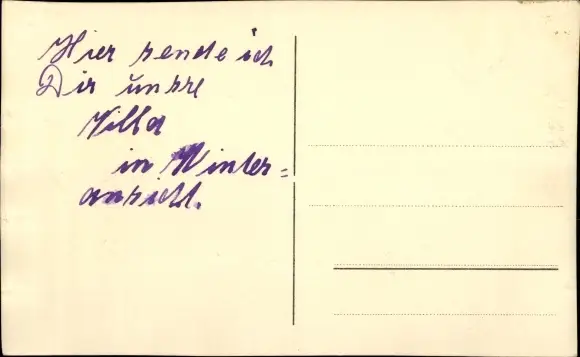 Hier sende ich
Dir unsre
Villa
in Winter=
ansicht.